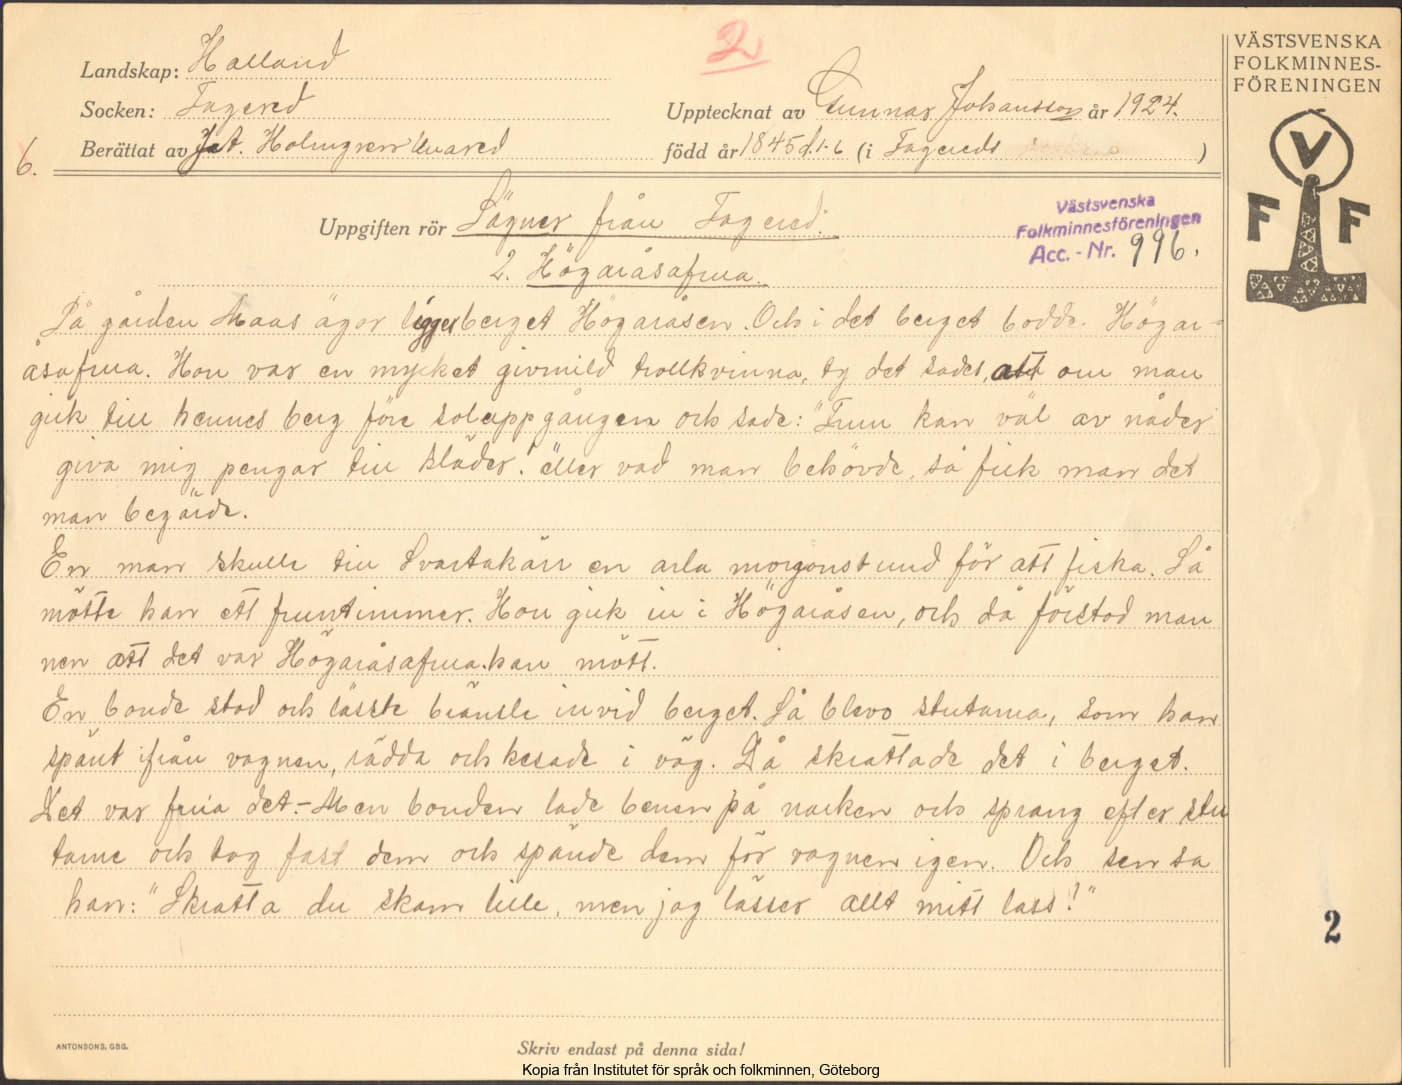 2
VÄSTSVENSKA
FOLKMINNES-
FÖRENINGEN
V
F F
Landskap: Halland
Socken: Fagered
Upptecknat av Gunnar Johansson år 1924.
6.
Berättat av J.A. Holmgren Ullared
född år 1845 d. 1-6 (i Fagereds )
Uppgiften rör Sägner från Fagered.
Västsvenska
Folkminnesföreningen
Acc. - Nr. 996.
2. Högaråsafrua.
På gården Maas ägor ligger berget Högaråsen. Och i det berget bodde Högar-
åsafrua. Hon var en mycket givmild trollkvinna, ty det sades, att om man
gick till hennes berg före soluppgången och sade: "Frun kan väl av nåder
giva mig pengar till kläder." eller vad man behövde, så fick man det
man begärde.
En man skulle till Svartakärr en arla morgonstund för att fiska. Så
mötte han ett fruntimmer. Hon gick in i Högaråsen, och då förstod man
nen att det var Högaråsafrua han mött.
En bonde stod och lasste bränsle invid berget. Så blevo stutarna, som han
spänt ifrån vagnen, rädda och kesade i väg. Då skrattade det i berget.
Det var frua det. - Men bonden lade benen på nacken och sprang efter stu
tarne och tog fast dem och spände dem för vagnen igen. Och sen sa
han: "Skratta du skam lille, men jag lasser allt mitt lass!"
2
ANTONSONS, GBG.
Skriv endast på denna sida!
Kopia från Institutet för språk och folkminnen, Göteborg